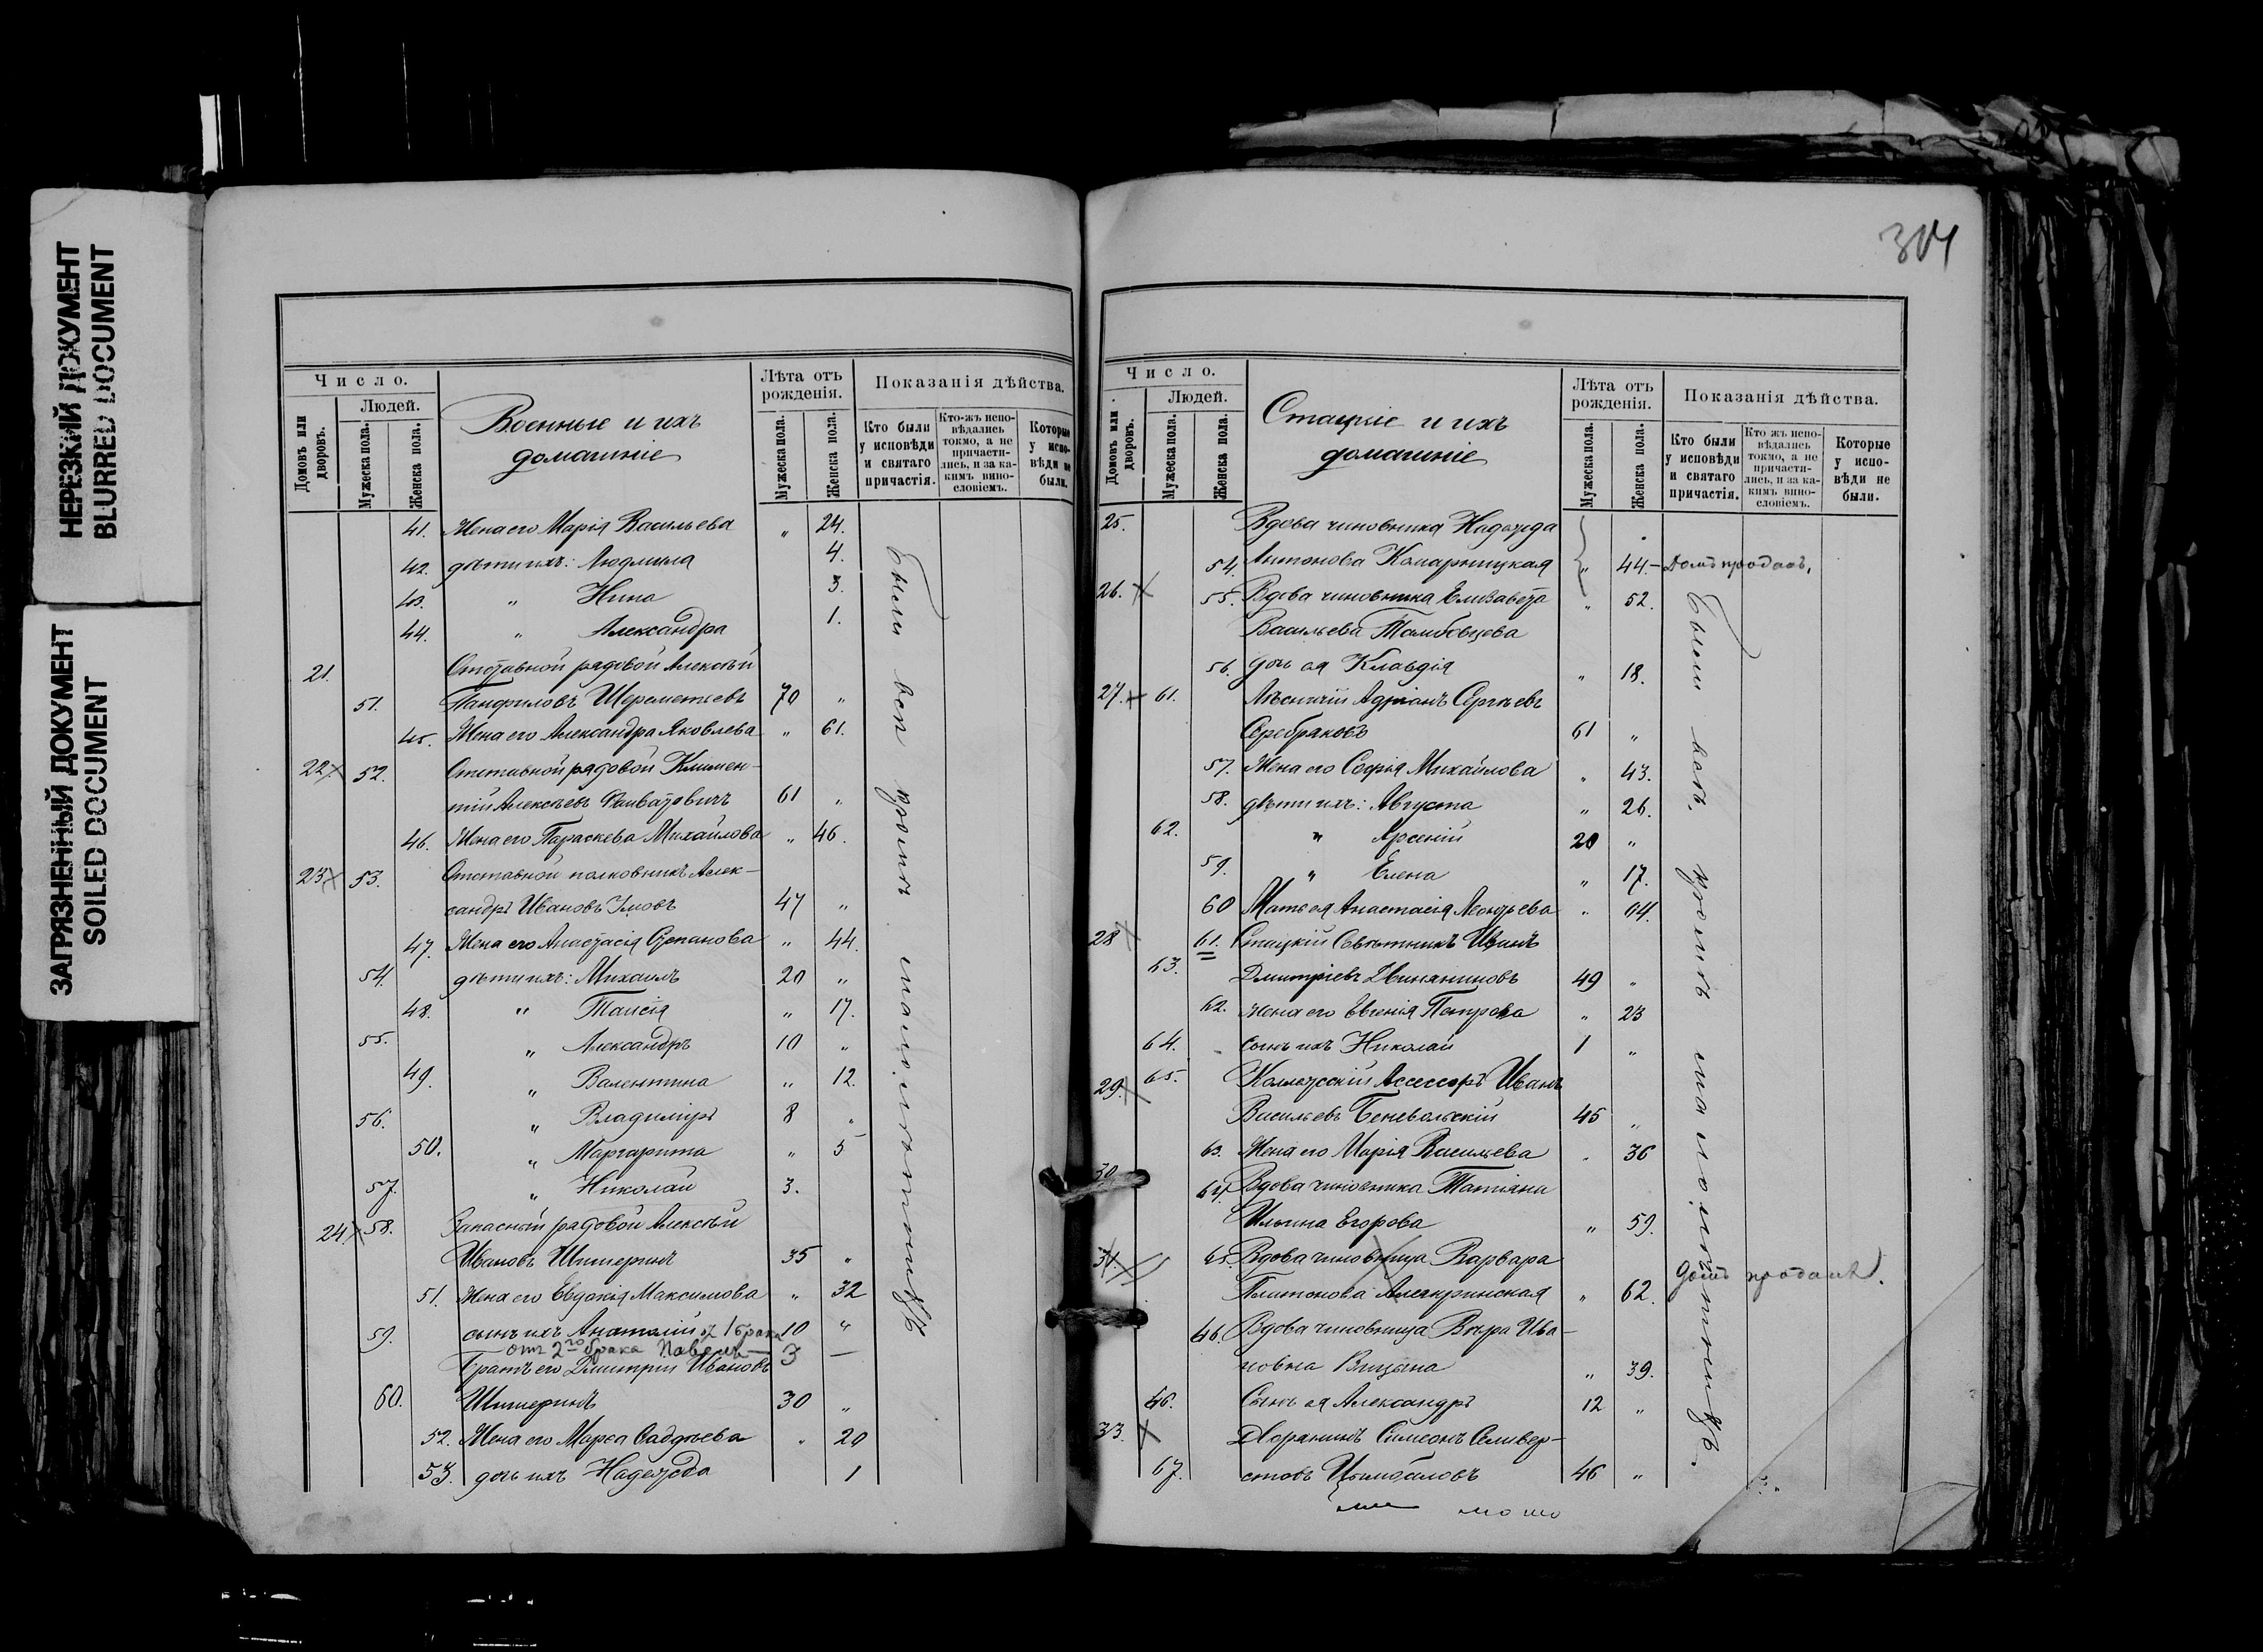 НЕРЕЗКИЙ ДОКУМЕНТ
BLURRED DOCUMENT
ЗАГРЯЗНЕННЫЙ ДОКУМЕНТ
SOILED DOCUMENT
Число.
Людей.
Домовъ или дворовъ.
Мужеска пола.
Женска пола.
Военные и ихъ
домашніе
Лѣта отъ рожденія.
Мужеска пола.
Женска пола.
Показанія дѣйства.
Кто были у исповѣди и святаго причастія.
Кто-жъ исповѣдались токмо, а не причастились, и за какимъ винословіемъ.
Которые у исповѣди не были.
41. Жена его Марія Васильева „ 24.
42. дѣти ихъ: Людмила 4.
43. „ Нина 3.
44. „ Александра 1.
21. Отставной рядовой Алексѣй
51. Панфиловъ Шереметьевъ 70 „
45. Жена его Александра Яковлева „ 61.
22 52. Отставной рядовой Климен-
тій Алексѣевъ 61 „
46. Жена его Параскева Михайлова „ 46.
23 53. Отставной полковникъ Алек-
сандръ Ивановъ 47 „
47. Жена его Анастасія Степанова „ 44.
54. дѣти ихъ: Михаилъ 20 „
48. „ Таисія „ 17.
55. „ Александръ 10 „
49. „ Валентина „ 12.
56. „ Владиміръ 8 „
50. „ Маргарита „ 5
57. „ Николай 3.
24 58. Запасный рядовой Алексѣй
Ивановъ 35 „
51. Жена его Евдокія Максимова „ 32
59. сынъ ихъ Анатолій 1 брака 10 „
— отъ 2го брака Павелъ — 3 —
Братъ его Дмитрій Ивановъ
60. 30 „
52. Жена его Марѳа „ 20
53. дочь ихъ Надежда 1
Были вси
304
Число.
Людей.
Домовъ или дворовъ.
Мужеска пола.
Женска пола.
Статскіе и ихъ
домашніе
Лѣта отъ рожденія.
Мужеска пола.
Женска пола.
Показанія дѣйства.
Кто были у исповѣди и святаго причастія.
Кто жъ исповѣдались токмо, а не причастились, и за какимъ винословіемъ.
Которые у исповѣди не были.
25. Вдова чиновника Надежда
54. Антонова Комарницкая „ 44. — Домъ проданъ.
26. 55. Вдова чиновника Елизавета „ 52.
Васильева Тамбовцева
56. дочь ея Клавдія „ 18.
27. 61. Лѣсничій Адріанъ Сергѣевъ
Серебряковъ 61 „
57. Жена его Софія Михайлова „ 43.
58. дѣти ихъ: Августа „ 26.
62. „ Арсеній 20 „
59. „ Елена „ 17.
60 Мать ея Анастасія Леонтьева „ 64.
28 61. Статскій Совѣтникъ Иванъ
63. Дмитріевъ 49 „
62. Жена его Евгенія Петрова „ 23
64. сынъ ихъ Николай 1 „
29. 65. Коллежскій Ассессоръ Иванъ
Васильевъ Беневольскій 45 „
63. Жена его Марія Васильева „ 36
30 64. Вдова чиновника Татіана
Ильина Егорова „ 59.
31. 65. Вдова чиновница Варвара
Платонова „ 62. Домъ проданъ.
66. Вдова чиновница Вѣра Ива-
новна „ 39.
66. Сынъ ея Александръ 12 „
33. Дворянинъ Симеонъ Селивер-
67. стовъ Цымбаловъ 46 „
Были вси